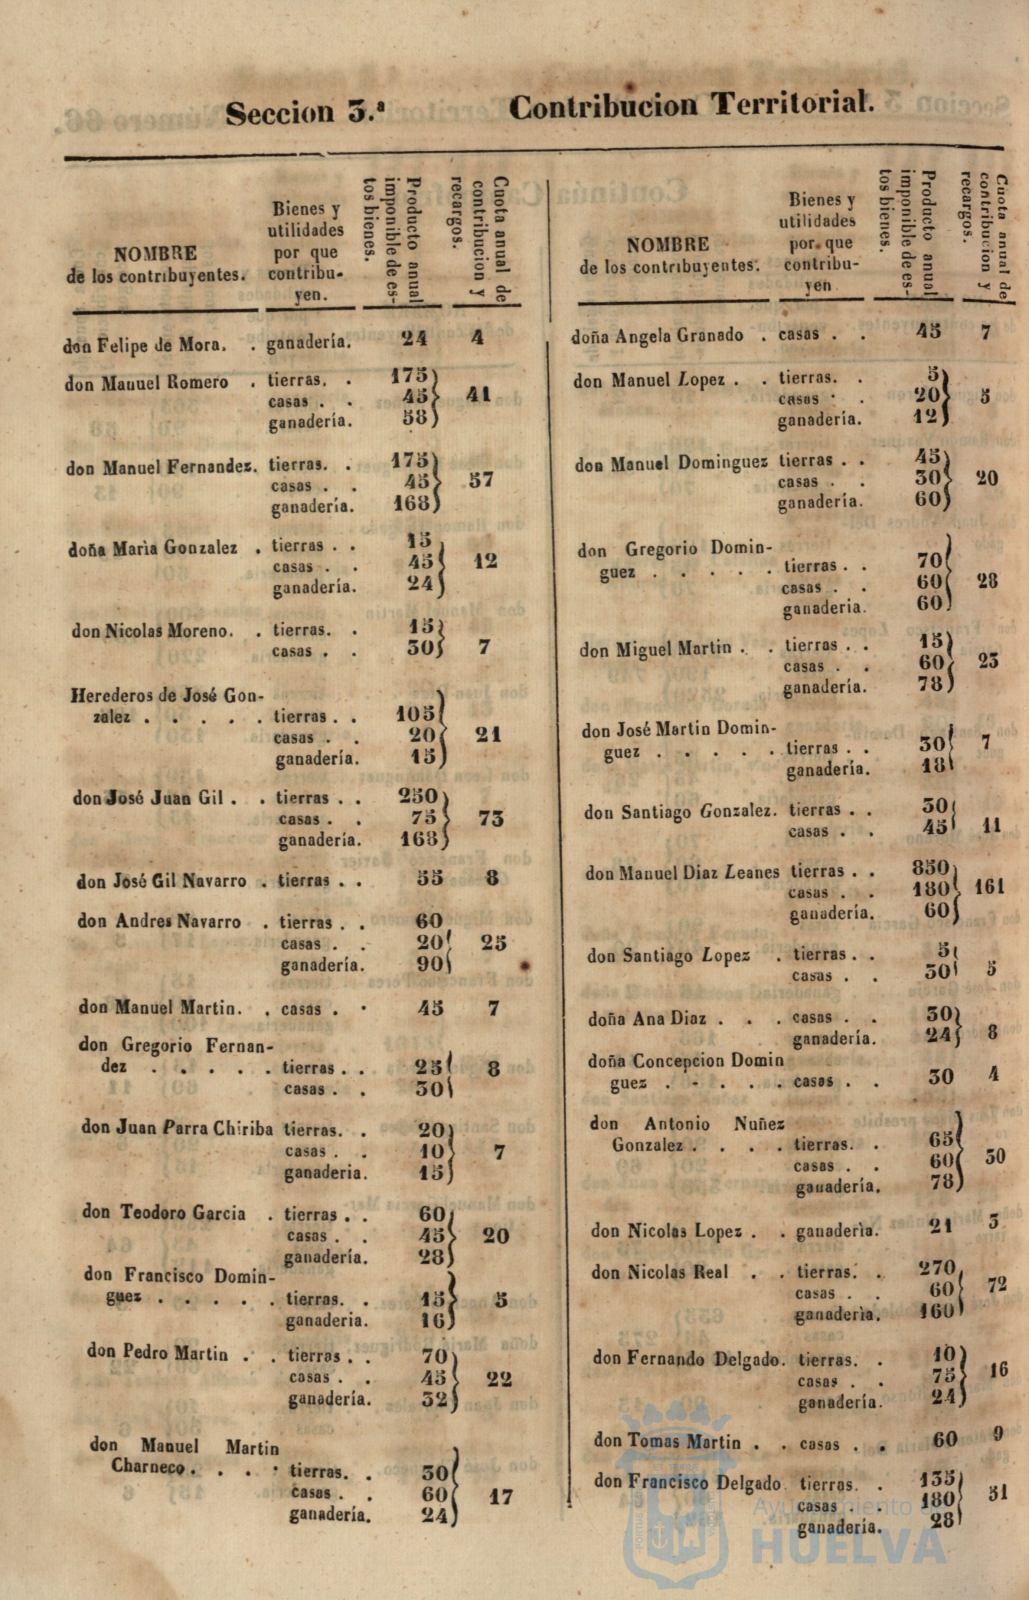 Seccion 3.ª Contribucion Territorial.
NOMBRE
de los contribuyentes.
Bienes y
utilidades
por que
contribu-
yen.
Producto anual
imponible de es-
tos bienes.
Cuota anual de
contribucion y
recargos.
don Felipe de Mora. . ganadería. 24 4
don Manuel Romero . tierras. . 175
casas . . 45 41
ganadería. 58
don Manuel Fernandez. tierras. . 175
casas . . 45 57
ganadería. 168
doña Maria Gonzalez . tierras . . 15
casas . . 45 12
ganadería. 24
don Nicolas Moreno. . tierras. . 15
casas . . 30 7
Herederos de José Gon-
zalez . . . . . tierras . . 105
casas . . 20 21
ganadería. 15
don José Juan Gil . . tierras . . 250
casas . . 75 73
ganadería. 168
don José Gil Navarro . tierras . . 55 8
don Andres Navarro . tierras . . 60
casas . . 20 25
ganadería. 90
don Manuel Martin. . casas . . 45 7
don Gregorio Fernan-
dez . . . . . tierras . . 25 8
casas . . 30
don Juan Parra Chiriba tierras. . 20
casas . . 10 7
ganaderia. 15
don Teodoro Garcia . tierras . . 60
casas . . 45 20
ganadería. 28
don Francisco Domin-
guez . . . . . tierras. . 15 5
ganaderia. 16
don Pedro Martin . . tierras . . 70
casas . . 45 22
ganadería. 32
don Manuel Martin
Charneco . . . . tierras. . 30
casas . . 60 17
ganadería. 24
NOMBRE
de los contribuyentes.
Bienes y
utilidades
por que
contribu-
yen
Producto anual
imponible de es-
tos bienes.
Cuota anual de
contribucion y
recargos.
doña Angela Granado . casas . . 45 7
don Manuel Lopez . . tierras. . 5
casas . . 20 5
ganadería. 12
don Manuel Dominguez tierras . . 45
casas . . 30 20
ganadería. 60
don Gregorio Domin-
guez . . . . . tierras . . 70
casas . . 60 28
ganaderia. 60
don Miguel Martin . . tierras . . 15
casas . . 60 23
ganadería. 78
don José Martin Domin-
guez . . . . . tierras . . 30 7
ganadería. 18
don Santiago Gonzalez. tierras . . 30
casas . . 45 11
don Manuel Diaz Leanes tierras . . 850
casas . . 180 161
ganadería. 60
don Santiago Lopez . tierras . . 5
casas . . 30 5
doña Ana Diaz . . . casas . . 30
ganadería. 24 8
doña Concepcion Domin
guez . - . . . casas . . 30 4
don Antonio Nuñez
Gonzalez . . . . tierras. . 65
casas . . 60 30
ganadería. 78
don Nicolas Lopez . . ganadería. 21 3
don Nicolas Real . . tierras. . 270
casas . . 60 72
ganadería. 160
don Fernando Delgado. tierras. . 10
casas . . 75 16
ganadería. 24
don Tomas Martin . . casas . . 60 9
don Francisco Delgado tierras. . 135
casas . . 180 31
ganadería. 28
Ayuntamiento de
HUELVA